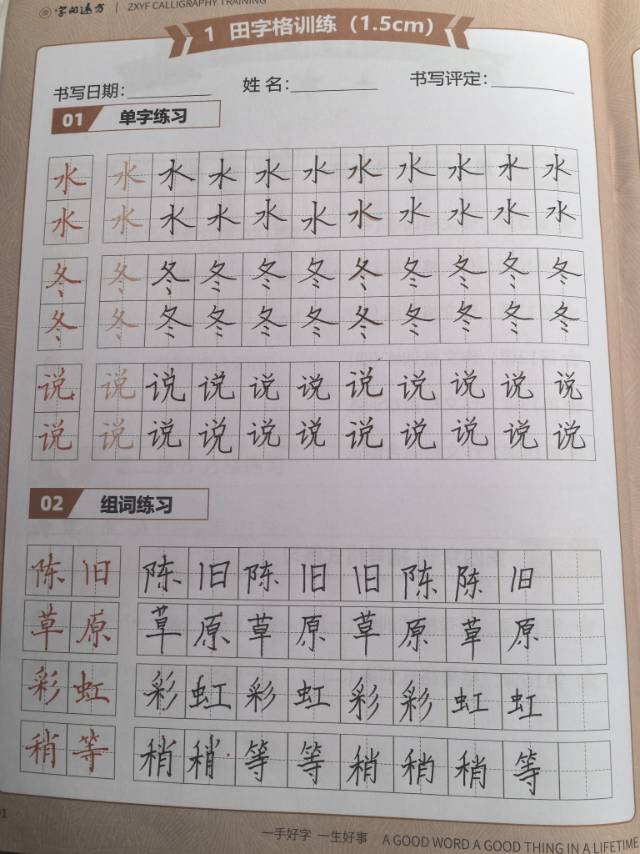 字向远方 ZXYF CALLIGRAPHY TRAINING
1 田字格训练（1.5cm）
书写日期: 姓名: 书写评定:
01 单字练习
水 水 水 水 水 水 水 水 水 水 水
水 水 水 水 水 水 水 水 水 水 水
冬 冬 冬 冬 冬 冬 冬 冬 冬 冬 冬
冬 冬 冬 冬 冬 冬 冬 冬 冬 冬 冬
说 说 说 说 说 说 说 说 说 说 说
说 说 说 说 说 说 说 说 说 说 说
02 组词练习
陈 旧 陈 旧 陈 旧 旧 陈 陈 旧
草 原 草 原 草 原 草 原 草 原
彩 虹 彩 虹 彩 虹 彩 彩 虹 虹
稍 等 稍 稍 等 等 稍 稍 稍 等
一手好字 一生好事 A GOOD WORD A GOOD THING IN A LIFETIME